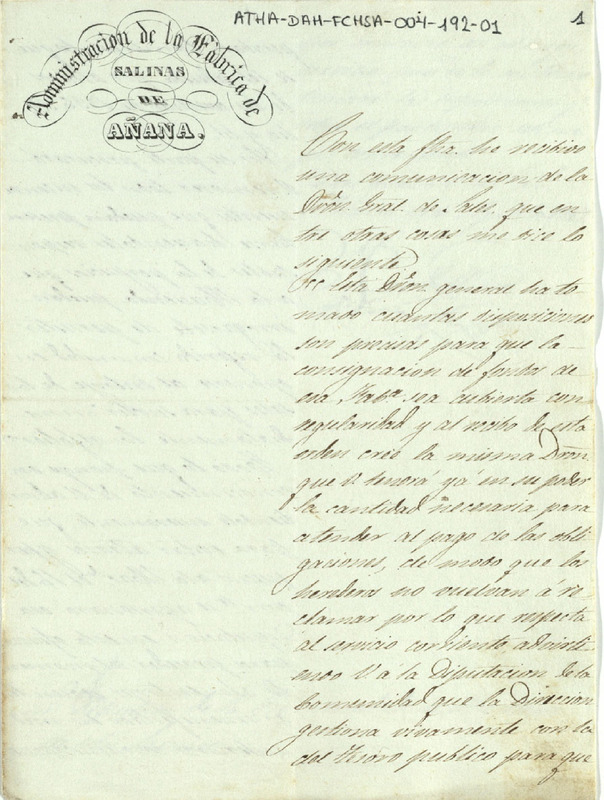 ATHA-DAH-FCHSA-004-192-01
1
Administracion de la Fabrica de
SALINAS
DE
AÑANA.
Con esta fha. he recibido
una comunicacion de la
Dron. Gral. de Sales. que en
tre otras cosas me dice lo
siguiente
Esta Dron. general ha to
mado cuantas disposiciones
son precisas para que la
consignacion de fondos de
esa Fabª. sea cubierta con
regularidad y al recibo de esta
orden cree la misma Dron.
que V. tendrá yá en su poder
la cantidad necesaria para
atender al pago de las obli
gaciones, de modo que los
herederos no vuelvan á re
clamar por lo que respecta
al servicio corriente, advirti
endo V. á la Diputacion de la
Comunidad que la Direccion
gestiona vivamente con la
del tesoro publico para que